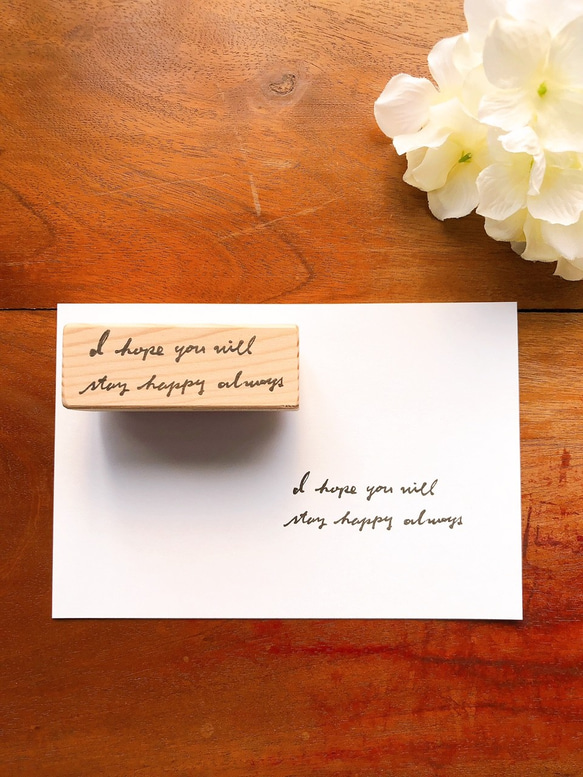 I hope you will
stay happy always
I hope you will
stay happy always